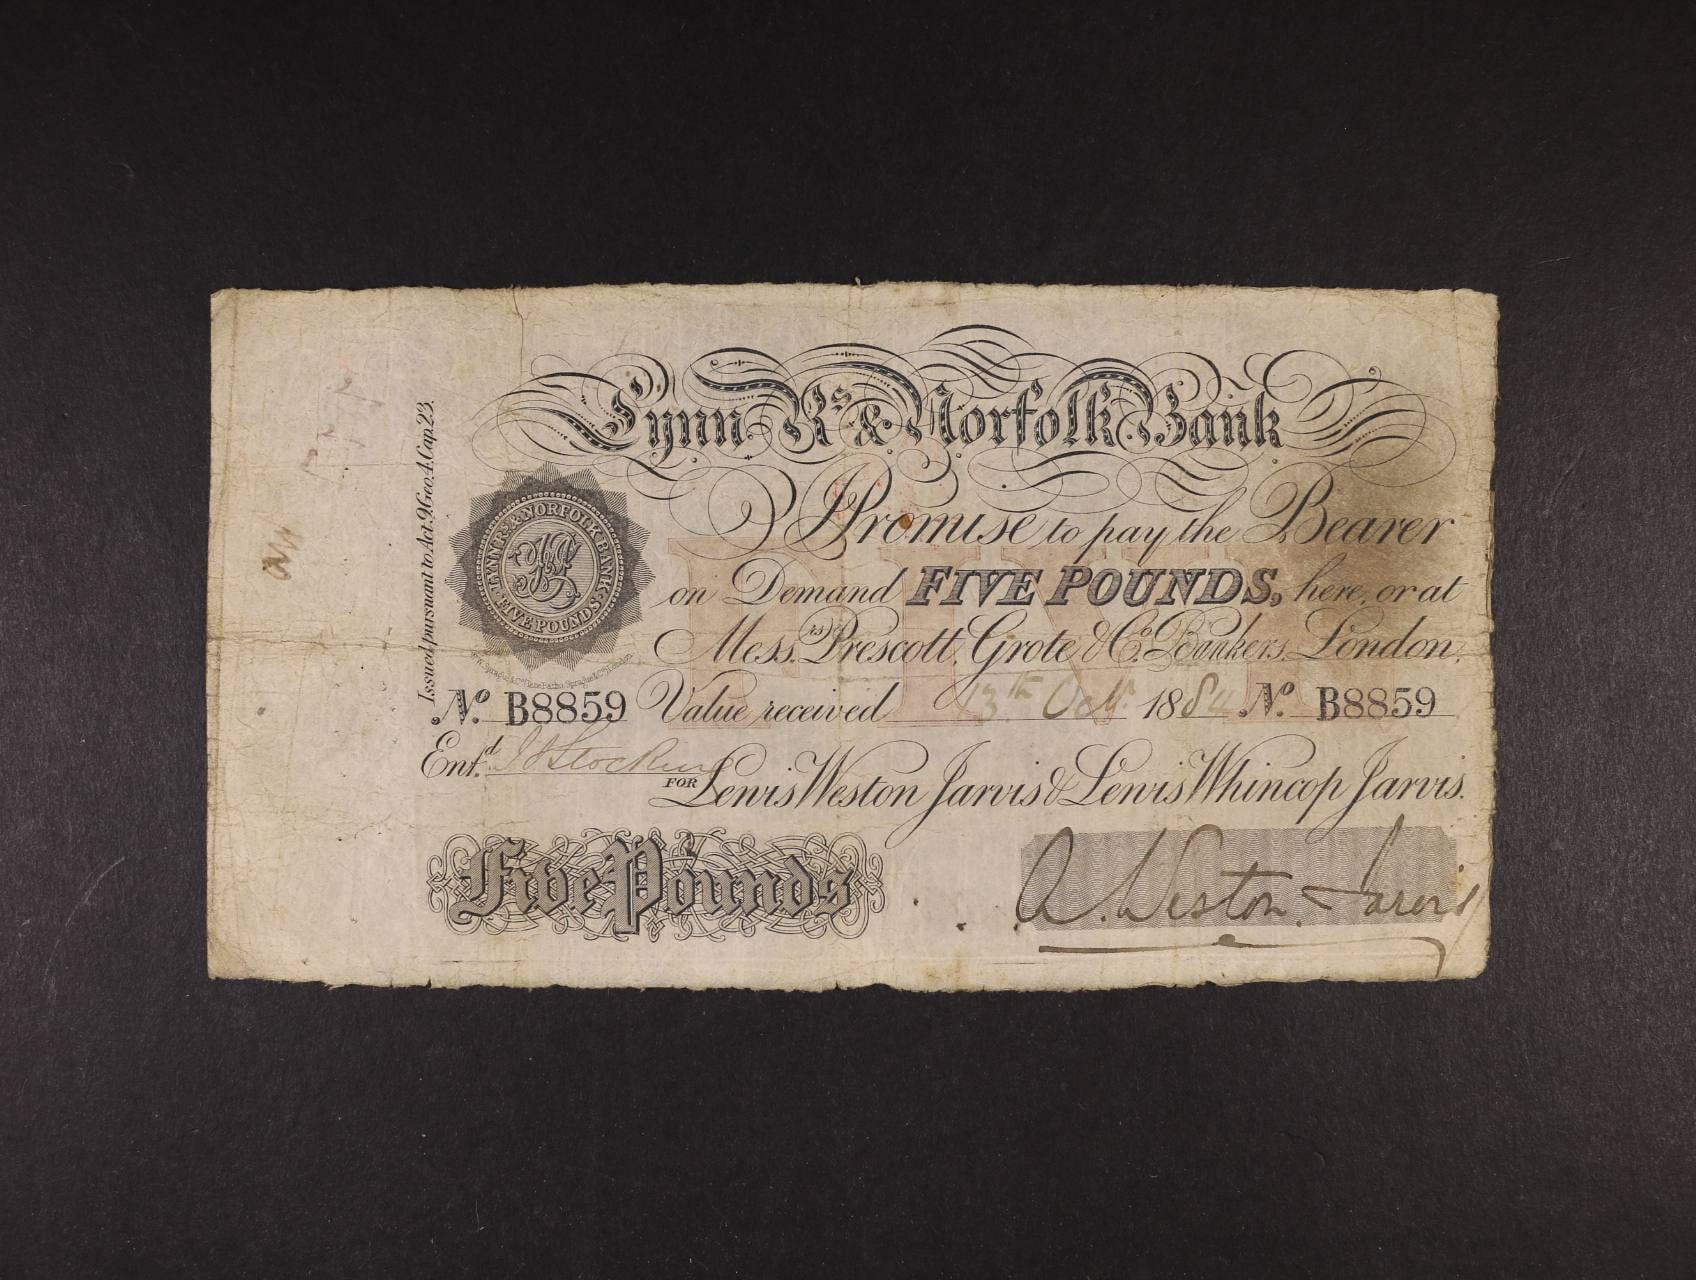 Lynn Rs & Norfolk Bank
Issued pursuant to Act 9 Geo. 4. Cap. 23.
LYNN RS & NORFOLK BANK
FIVE POUNDS
I Promise to pay the Bearer
on Demand FIVE POUNDS, here, or at
Messrs. Prescott, Grote & Co. Bankers, London.
No. B8859 Value received 13th Octr 1884 No. B8859
Entd.
FOR Lewis Weston Jarvis & Lewis Whincop Jarvis.
Five Pounds
A. Weston Jarvis